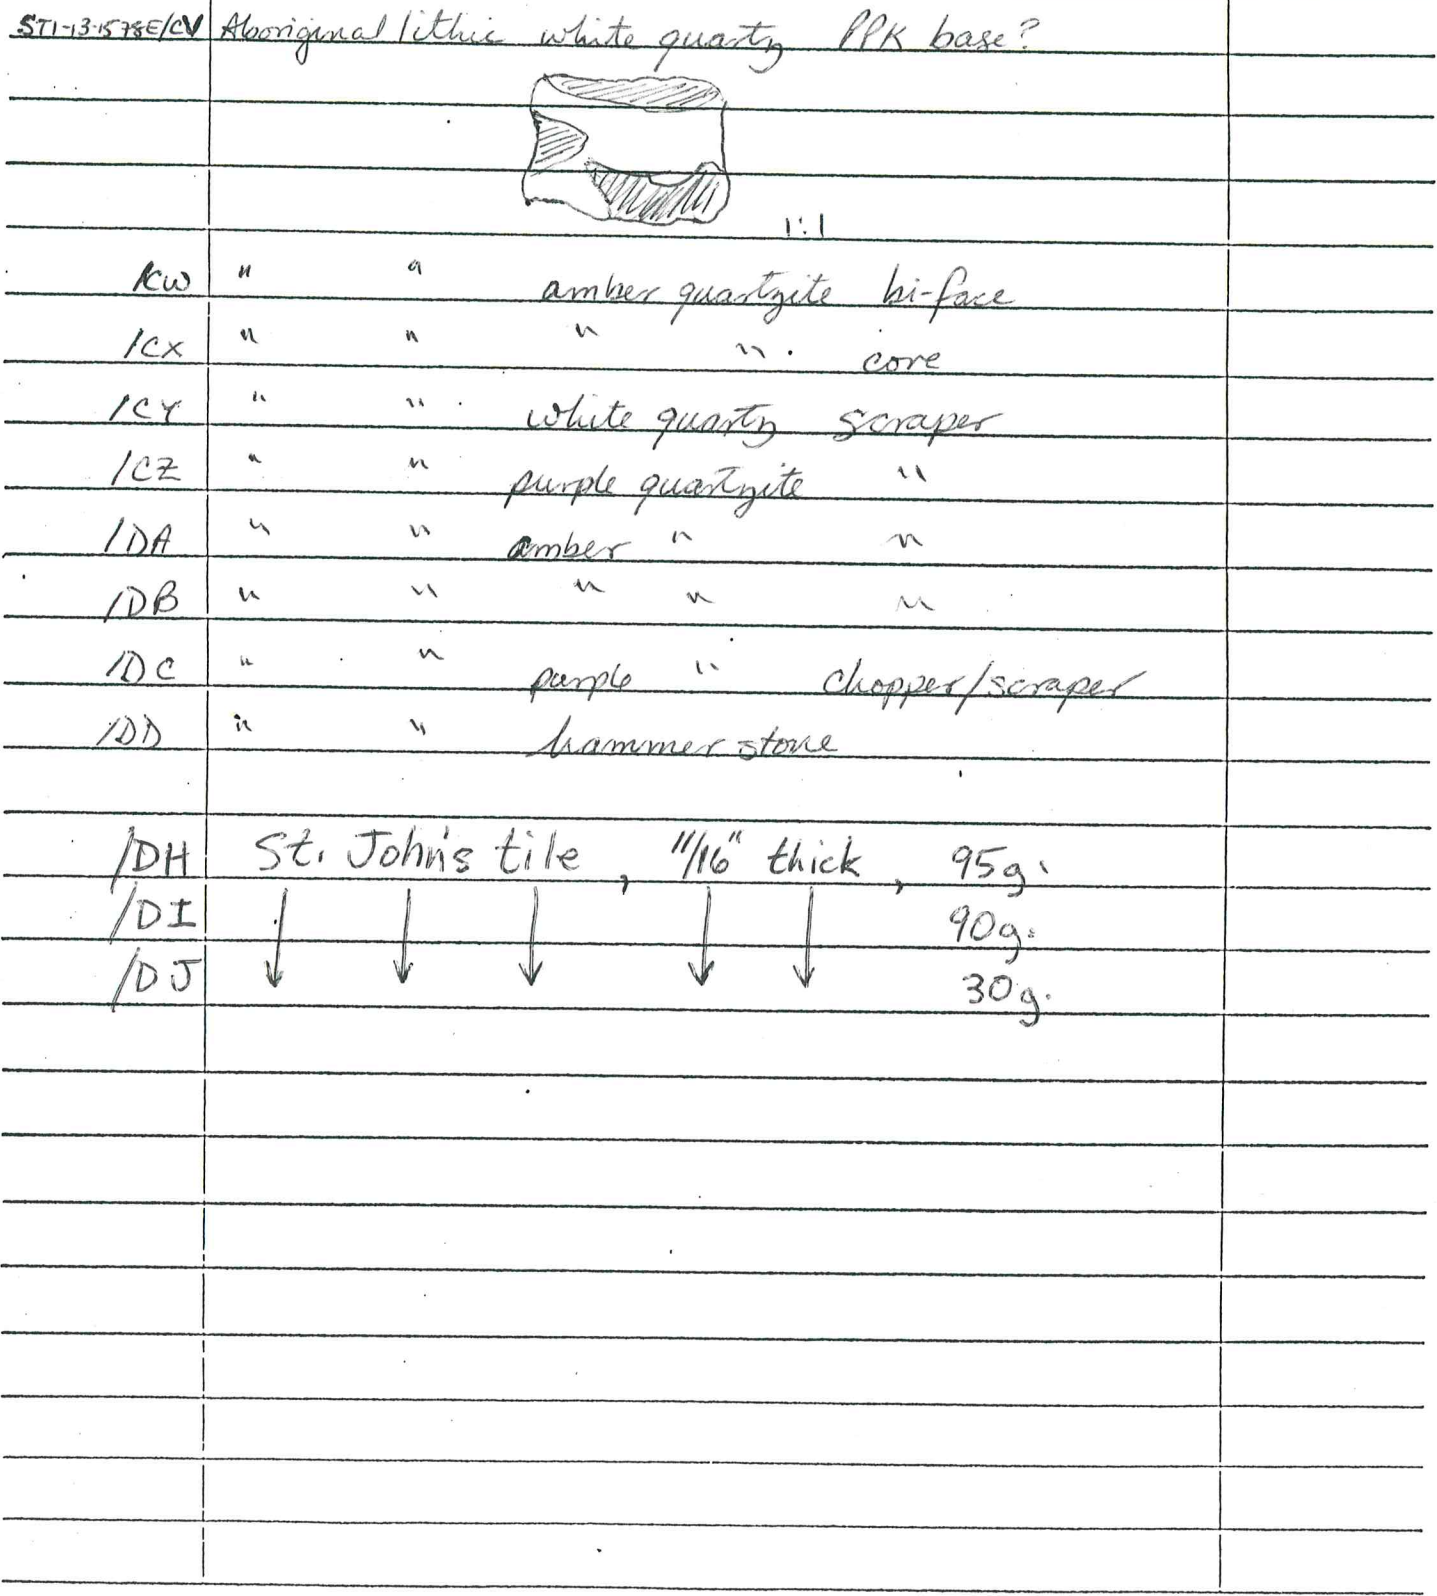 ST1-13-1578E/CV Aboriginal lithic white quartz PPK base?
1:1
/CW " " amber quartzite bi-face
/CX " " " " core
/CY " " white quartz scraper
/CZ " " purple quartzite "
/DA " " amber " "
/DB " " " " "
/DC " " purple " chopper/scraper
/DD " " hammer stone
/DH St. John's tile, 11/16" thick, 95g.
/DI ↓ ↓ ↓ ↓ ↓ 90g.
/DJ 30g.